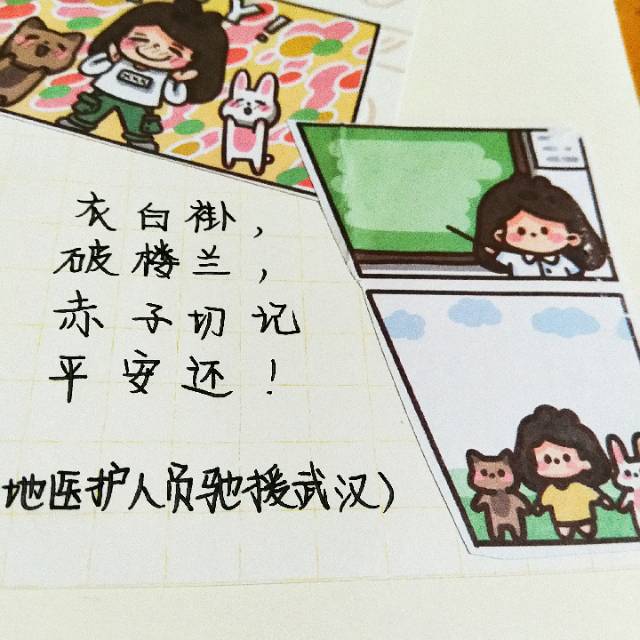 衣白褂，
破楼兰，
赤子切记
平安还！
地医护人员驰援武汉）